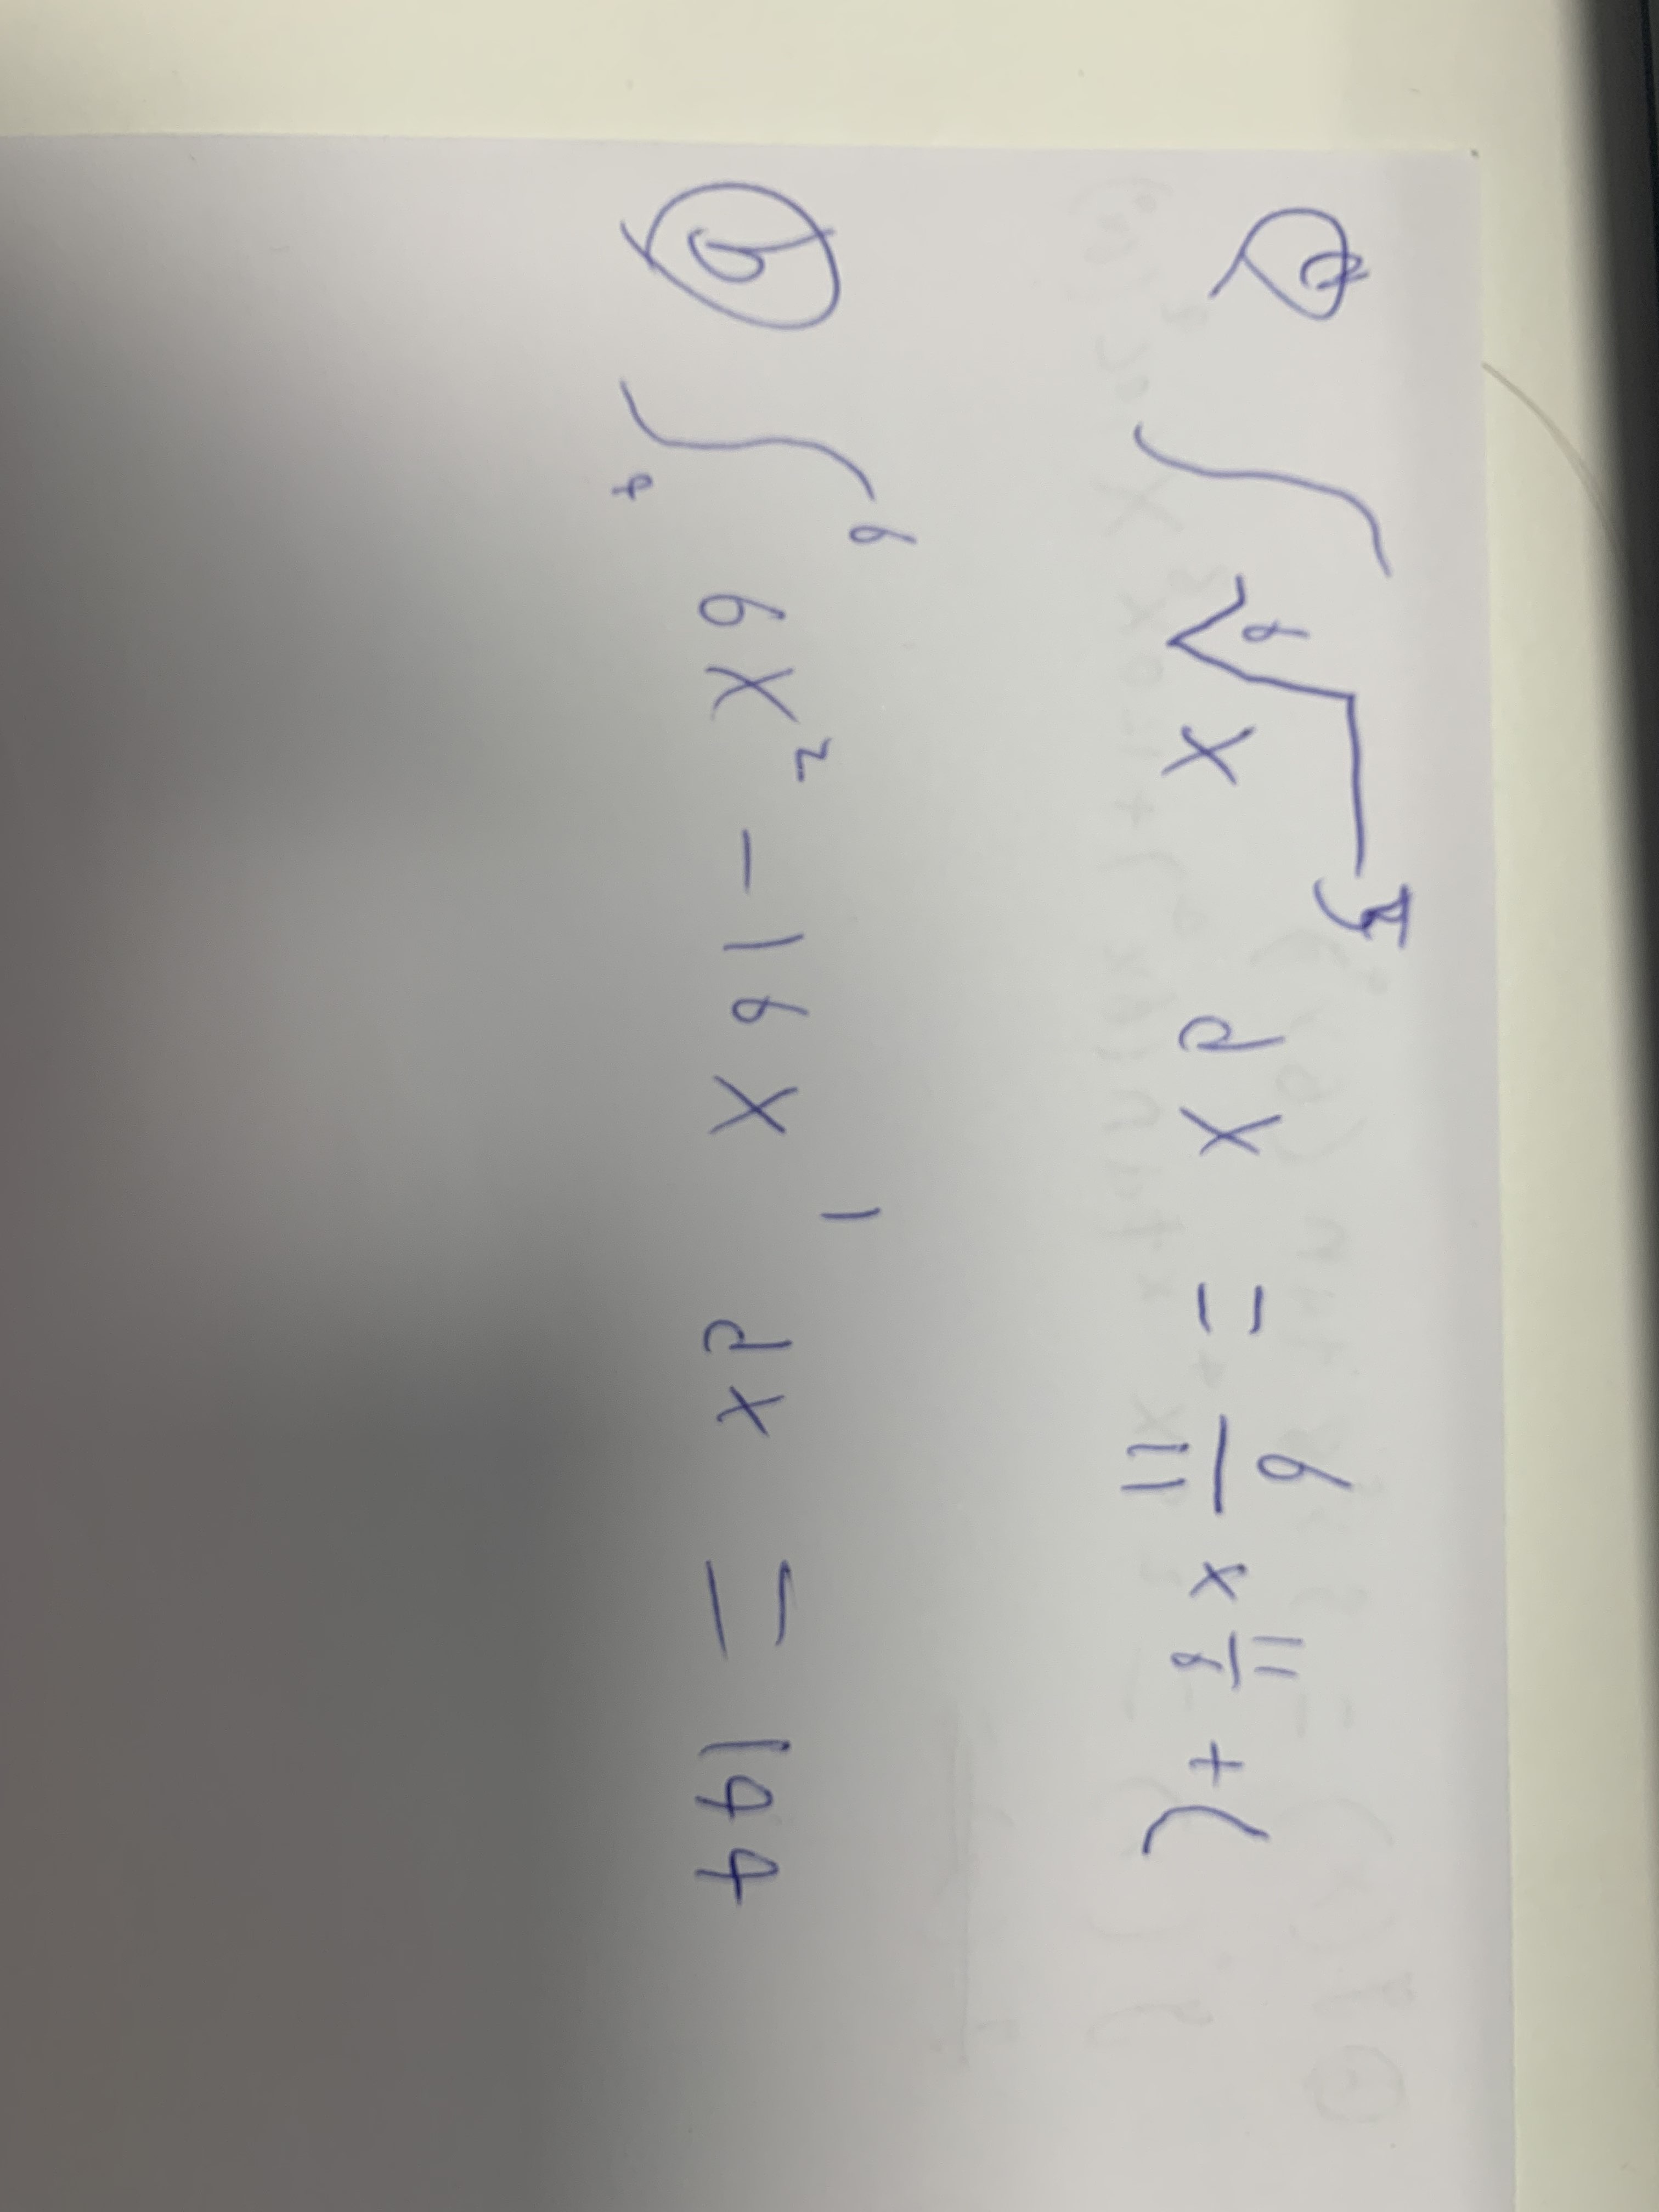 a ∫ ⁶√x⁵ dx = 6/11 x^(11/6) + C
b ∫₄⁶ 6x² - 16x¹ dx = 144